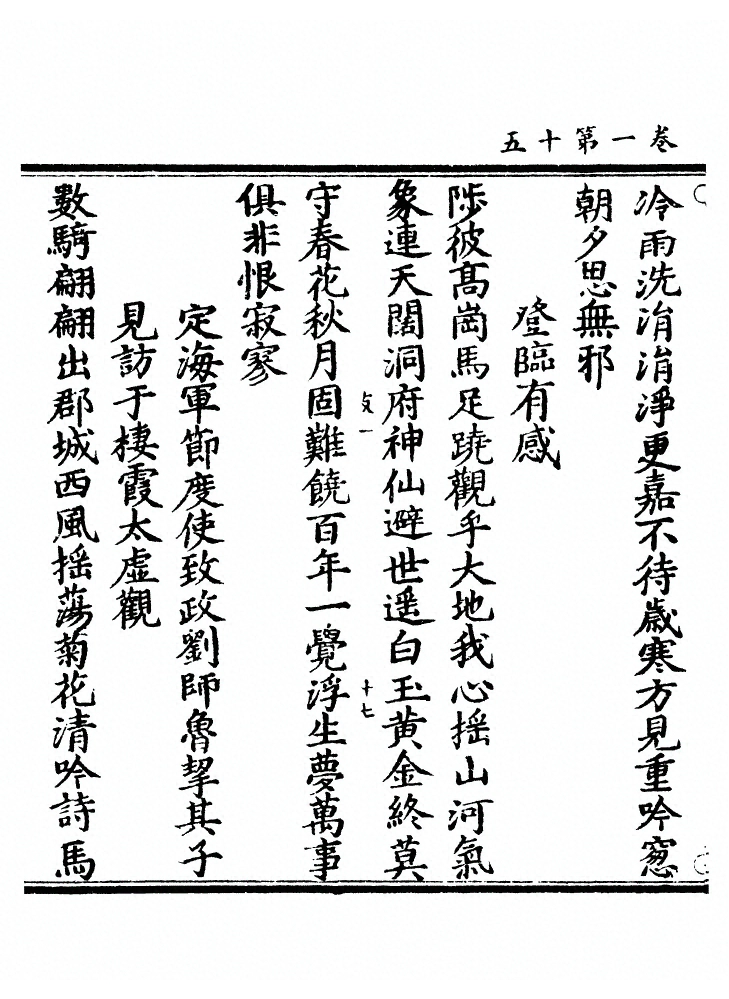 五十第一卷
冷雨洗涓涓淨更嘉不待歲寒方見重吟窓
朝夕思無邪
登臨有感
陟彼髙崗馬足蹺觀乎大地我心揺山河氣
象連天闊洞府神仙避世遥白玉黄金終莫
守春花秋月固難饒百年一覺浮生夢萬事
俱非恨寂寥
定海軍節度使致政劉師魯挈其子
見訪于棲霞太虛觀
數騎翩翩出郡城西風揺蕩菊花清吟詩馬
友一
十七